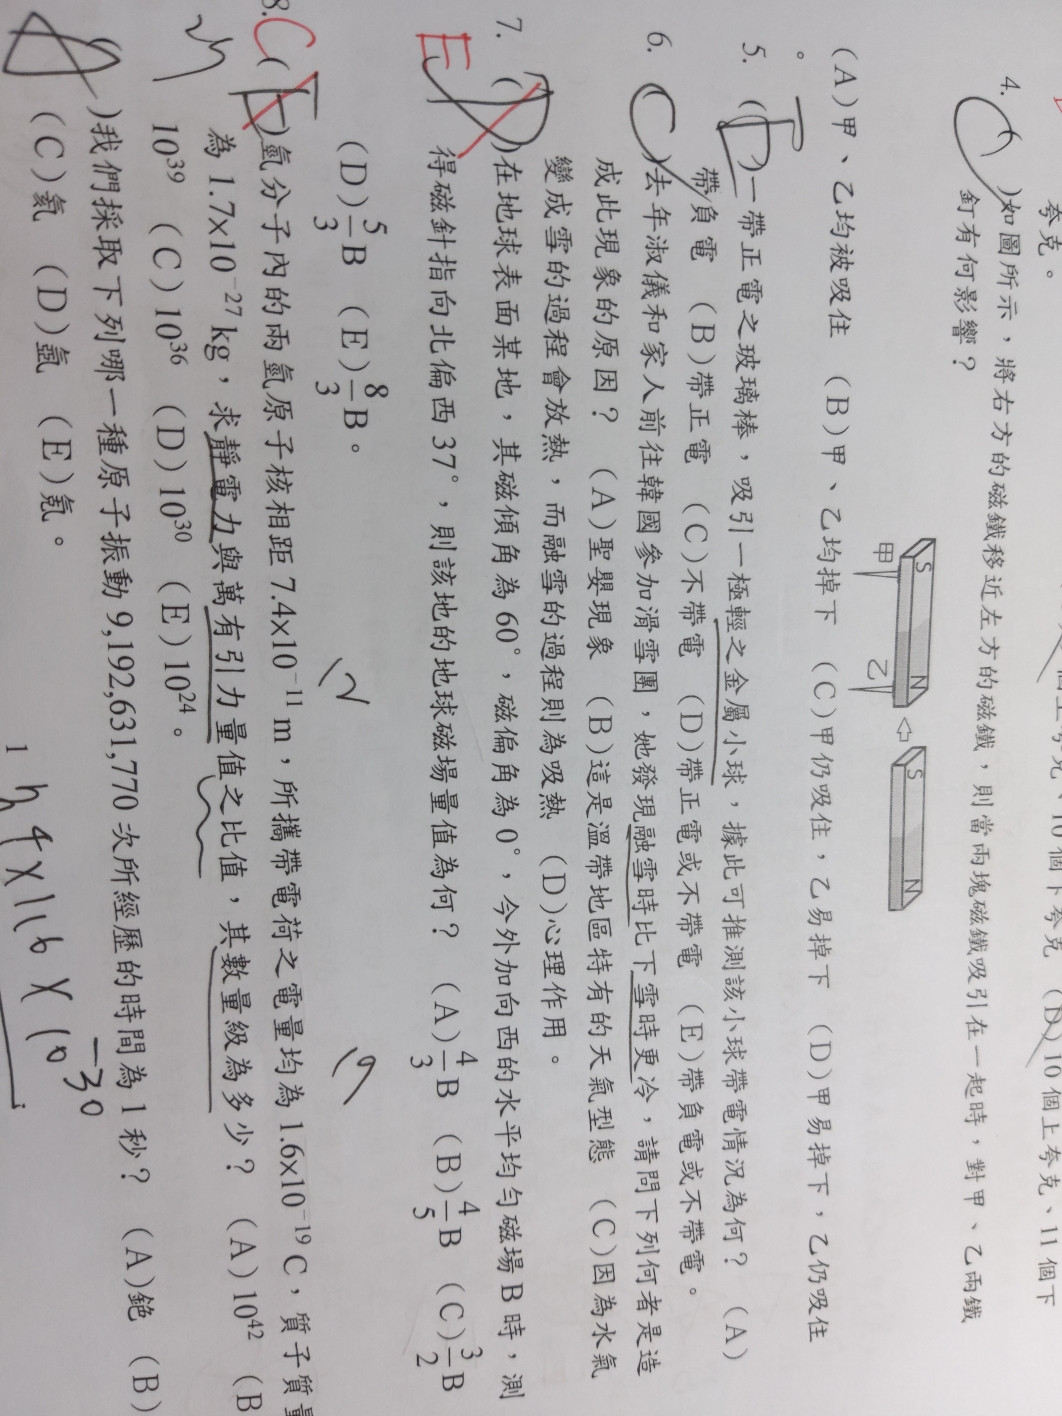 夸克。
10個下夸克 (D)10個上夸克、11個下
4. ( )如圖所示，將右方的磁鐵移近左方的磁鐵，則當兩塊磁鐵吸引在一起時，對甲、乙兩鐵
釘有何影響？
S N S N
甲 乙
(A)甲、乙均被吸住 (B)甲、乙均掉下 (C)甲仍吸住，乙易掉下 (D)甲易掉下，乙仍吸住
。
5. (E)一帶正電之玻璃棒，吸引一極輕之金屬小球，據此可推測該小球帶電情況為何？ (A)
帶負電 (B)帶正電 (C)不帶電 (D)帶正電或不帶電 (E)帶負電或不帶電。
6. (C)去年淑儀和家人前往韓國參加滑雪團，她發現融雪時比下雪時更冷，請問下列何者是造
成此現象的原因？ (A)聖嬰現象 (B)這是溫帶地區特有的天氣型態 (C)因為水氣
變成雪的過程會放熱，而融雪的過程則為吸熱 (D)心理作用。
7. E ( )在地球表面某地，其磁傾角為60°，磁偏角為0°，今外加向西的水平均勻磁場B時，測
得磁針指向北偏西37°，則該地的地球磁場量值為何？ (A)4/3 B (B)4/5 B (C)3/2 B
(D)5/3 B (E)8/3 B。
8. C (E)氫分子內的兩氫原子核相距7.4x10⁻¹¹ m，所攜帶電荷之電量均為1.6x10⁻¹⁹ C，質子質量
為1.7x10⁻²⁷ kg，求靜電力與萬有引力量值之比值，其數量級為多少？ (A)10⁴² (B
10³⁹ (C)10³⁶ (D)10³⁰ (E)10²⁴。
)我們採取下列哪一種原子振動9,192,631,770次所經歷的時間為1秒？ (A)銫 (B)
(C)氦 (D)氬 (E)氪。